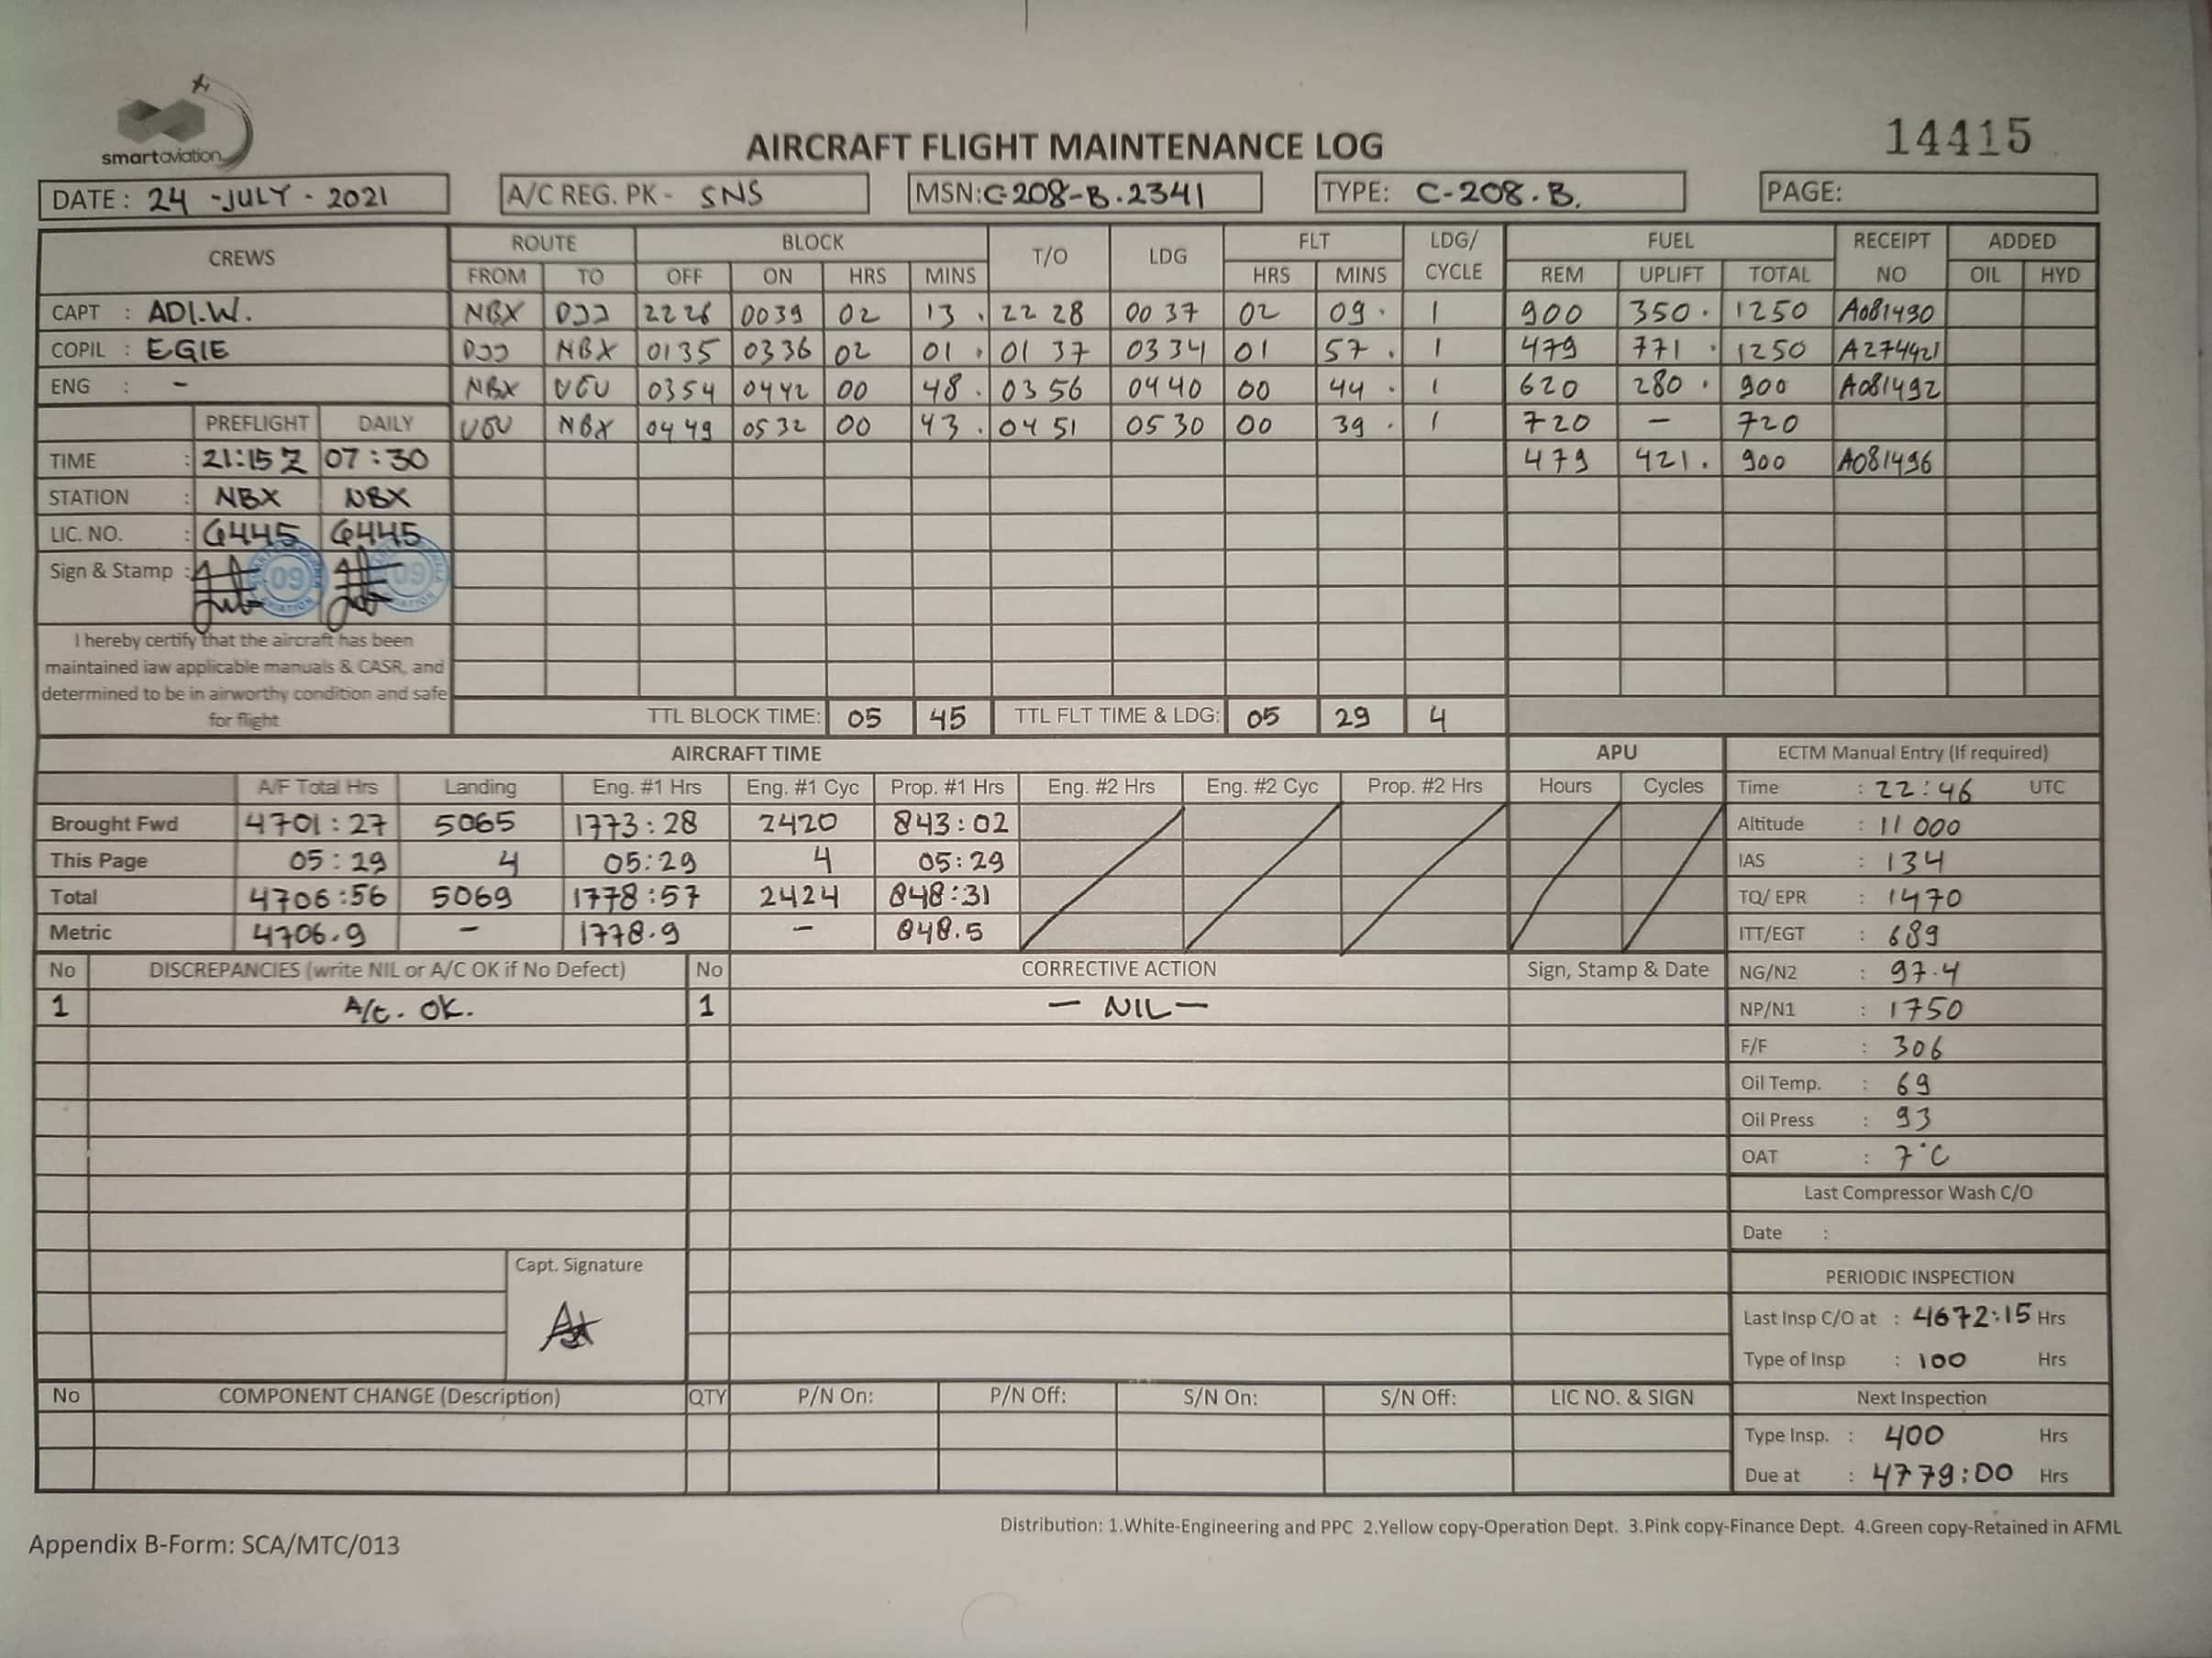 smartaviation
AIRCRAFT FLIGHT MAINTENANCE LOG
14415
DATE: 24 -JULY - 2021 A/C REG. PK - SNS MSN: C-208-B.2341 TYPE: C-208.B. PAGE:
CREWS ROUTE BLOCK T/O LDG FLT LDG/ CYCLE FUEL RECEIPT NO ADDED
FROM TO OFF ON HRS MINS HRS MINS REM UPLIFT TOTAL OIL HYD
CAPT : ADI.W. NBX DJJ 2226 0039 02 13 . 22 28 00 37 02 09 . 1 900 350 . 1250 A081490
COPIL : EGIE DJJ NBX 0135 0336 02 01 . 01 37 0334 01 57 . 1 479 771 . 1250 A274421
ENG : - NBX 0354 0442 00 48 . 03 56 0440 00 44 . 1 620 280 . 900 A081492
PREFLIGHT DAILY NBX 0449 0532 00 43 . 04 51 0530 00 39 . 1 720 - 720
TIME : 21:15 Z 07:30 479 421 . 900 A081496
STATION : NBX NBX
LIC. NO. : 6445 6445
Sign & Stamp : 09 09
I hereby certify that the aircraft has been
maintained iaw applicable manuals & CASR, and
determined to be in airworthy condition and safe
for flight
TTL BLOCK TIME: 05 45 TTL FLT TIME & LDG: 05 29 4
AIRCRAFT TIME APU ECTM Manual Entry (If required)
A/F Total Hrs Landing Eng. #1 Hrs Eng. #1 Cyc Prop. #1 Hrs Eng. #2 Hrs Eng. #2 Cyc Prop. #2 Hrs Hours Cycles Time : 22:46 UTC
Brought Fwd 4701:27 5065 1773:28 2420 843:02 Altitude : 11 000
This Page 05:29 4 05:29 4 05:29 IAS : 134
Total 4706:56 5069 1778:57 2424 848:31 TQ/ EPR : 1470
Metric 4706.9 - 1778.9 - 848.5 ITT/EGT : 689
No DISCREPANCIES (write NIL or A/C OK if No Defect) No CORRECTIVE ACTION Sign, Stamp & Date NG/N2 : 97.4
1 A/C. OK. 1 - NIL - NP/N1 : 1750
F/F : 306
Oil Temp. : 69
Oil Press : 93
OAT : 7°C
Last Compressor Wash C/O
Date :
Capt. Signature
PERIODIC INSPECTION
Last Insp C/O at : 4672:15 Hrs
Type of Insp : 100 Hrs
No COMPONENT CHANGE (Description) QTY P/N On: P/N Off: S/N On: S/N Off: LIC NO. & SIGN Next Inspection
Type Insp. : 400 Hrs
Due at : 4779:00 Hrs
Distribution: 1.White-Engineering and PPC 2.Yellow copy-Operation Dept. 3.Pink copy-Finance Dept. 4.Green copy-Retained in AFML
Appendix B-Form: SCA/MTC/013